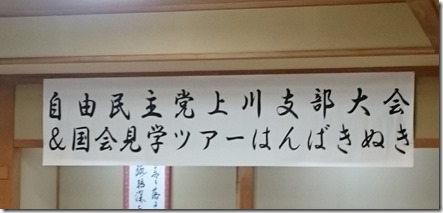 自由民主党上川支部大会
&国会見学ツアーはんばきぬき